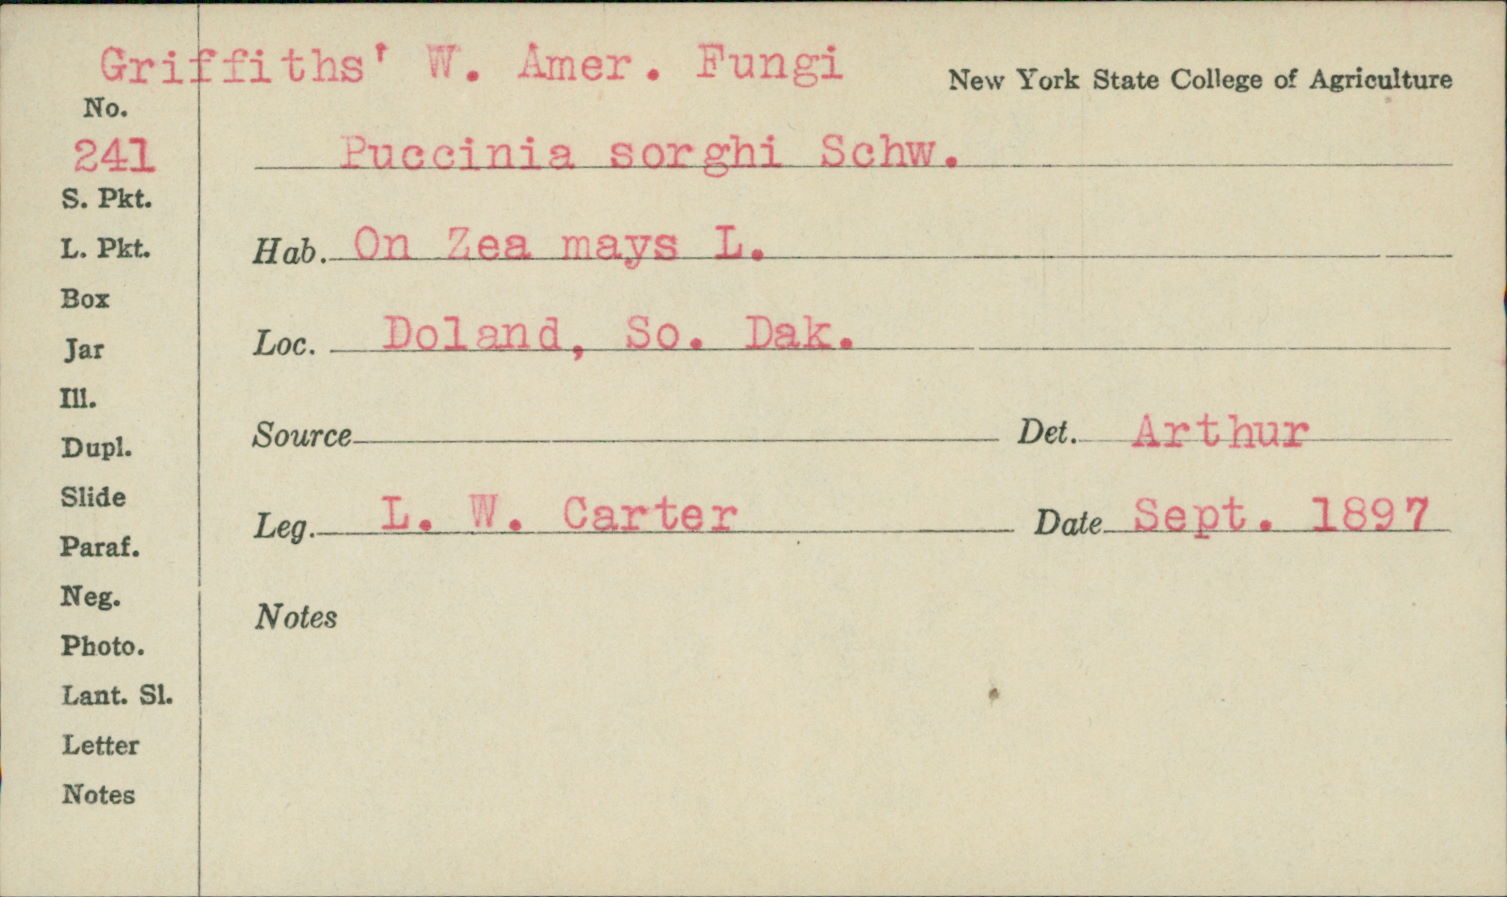 Griffiths' W. Amer. Fungi
New York State College of Agriculture
No.
241
Puccinia sorghi Schw.
S. Pkt.
L. Pkt.
Hab. On Zea mays L.
Box
Jar
Loc. Doland, So. Dak.
Ill.
Dupl.
Source Det. Arthur
Slide
Leg. L. W. Carter Date Sept. 1897
Paraf.
Neg.
Notes
Photo.
Lant. Sl.
Letter
Notes